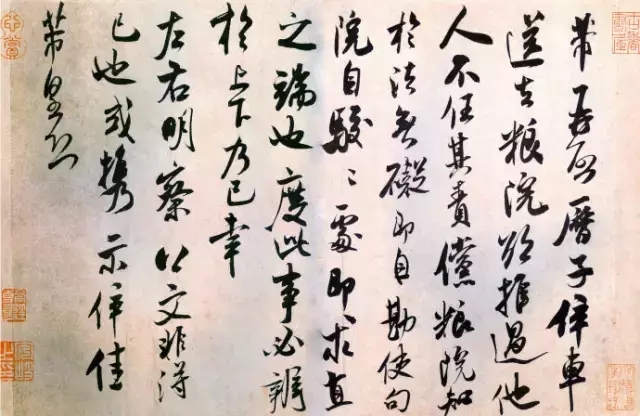 芾再啓曆子倅車
送去粮院欲推過他
人不任其責儻粮院知
於法無礙即自勘使句
院自駁〻處即求直
之端也度此事必辦
於上下乃已幸
左右明察以文非得
已也或携示倅佳
芾皇恐